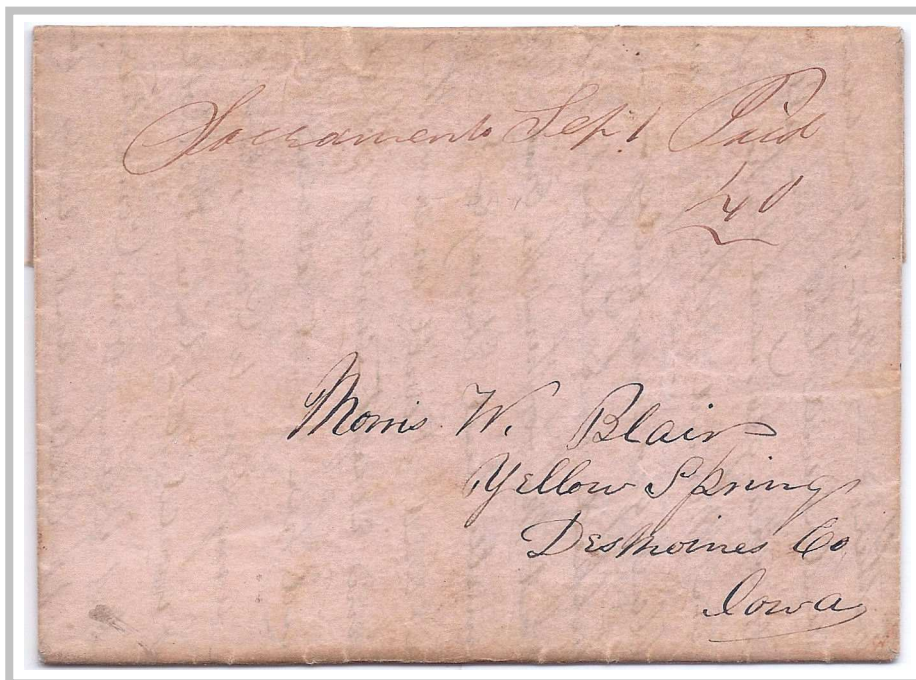 Sacramento Sept 1 Paid
40
Morris W. Blair
Yellow Spring
Desmoines Co
Iowa